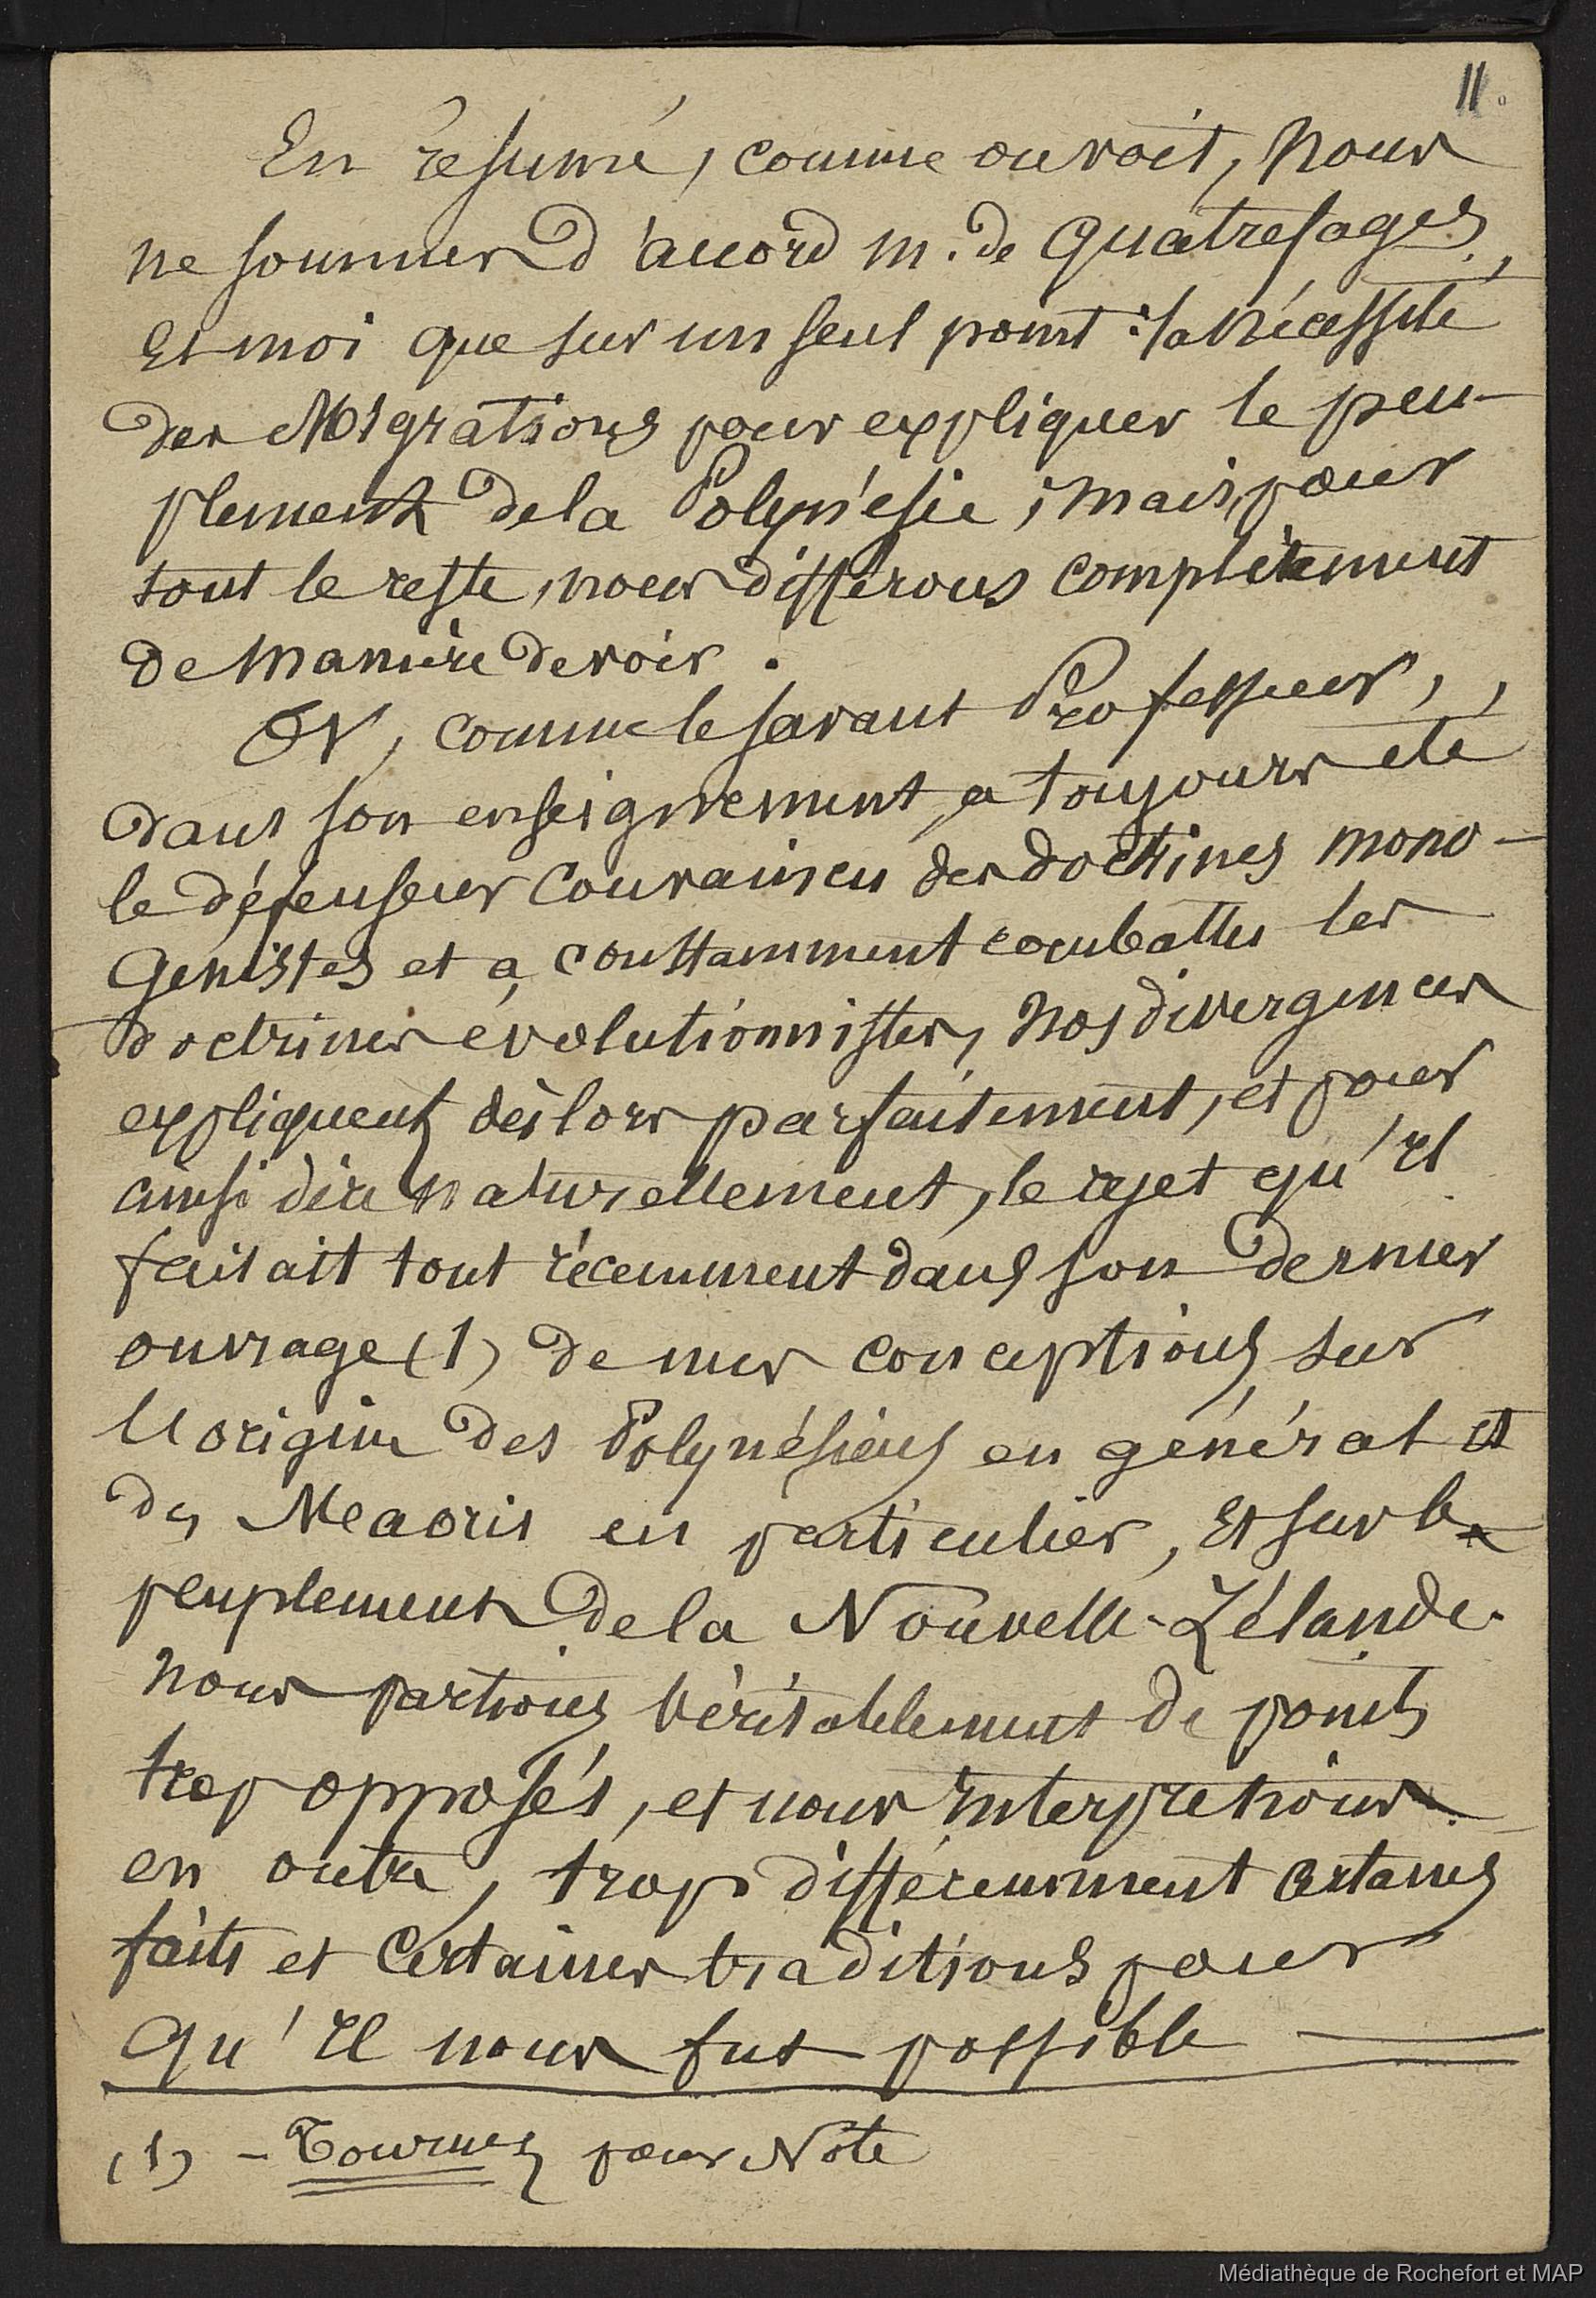 11.
En résumé, comme on voit, nous
ne sommes d'accord M. de Quatrefages,
et moi que sur un seul point : la nécessité
des Migrations pour expliquer le peu-
plement de la Polynésie ; mais, pour
tout le reste, nous différons complètement
de manière de voir.
Or, comme le savant Professeur,
dans son enseignement, a toujours été
le défenseur convaincu des doctrines mono-
génistes et a constamment combattu les
doctrines évolutionnistes, nos divergences
expliquent dès lors parfaitement, et pour
ainsi dire naturellement, le rejet qu'il
faisait tout récemment dans son dernier
ouvrage (1) de mes conceptions sur
l'origine des Polynésiens en général et
des Maoris en particulier, et sur le
peuplement de la Nouvelle-Zélande.
Nous partions véritablement de points
trop opposés, et nous interprétions
en outre, trop différemment certains
faits et certaines traditions pour
qu'il nous fut possible
(1) - Tournez pour Note
Médiathèque de Rochefort et MAP